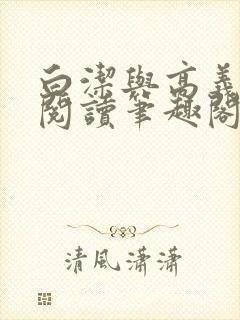 白潔與高義
閱讀筆趣閣
清風瀟瀟